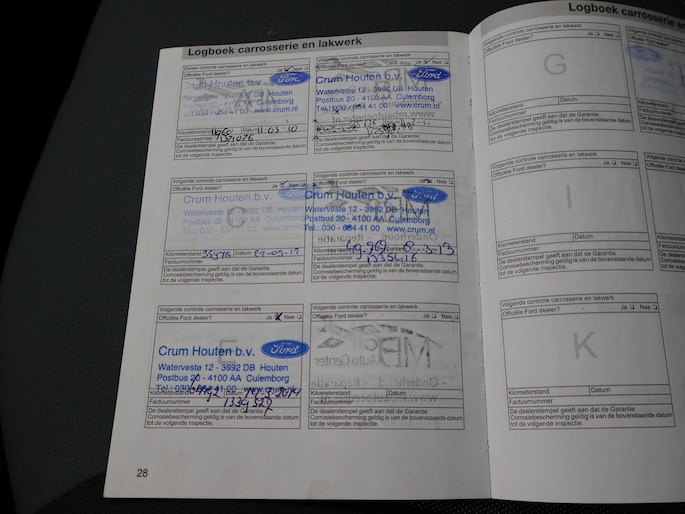 Logboek carrosserie en lakwerk
Eerste controle carrosserie en lakwerk
Officiële Ford dealer? Ja Nee
Crum Houten b.v. Ford
Waterveste 12 - 3992 DB Houten
Postbus 20 - 4100 AA Culemborg
Tel.: 030 - 634 41 00 www.crum.nl
Kilometerstand Datum 11-03-10
Factuurnummer
De dealerstempel geeft aan dat de Garantie
Corrosiebescherming geldig is van bovenstaande datum
tot de volgende inspectie.
Volgende controle carrosserie en lakwerk
Officiële Ford dealer? Ja Nee
Crum Houten b.v. Ford
Waterveste 12 - 3992 DB Houten
Postbus 20 - 4100 AA Culemborg
Tel.: 030 - 634 41 00 www.crum.nl
De dealerstempel geeft aan dat de Garantie
Corrosiebescherming geldig is van de bovenstaande datum
tot de volgende inspectie.
Volgende controle carrosserie en lakwerk
Officiële Ford dealer? Ja Nee
Crum Houten b.v.
Waterveste 12 - 3992 DB Houten
Postbus 20 - 4100 AA Culemborg
Tel.: 030 - 634 41 00 www.crum.nl
Kilometerstand Datum
Factuurnummer
De dealerstempel geeft aan dat de Garantie
Corrosiebescherming geldig is van de bovenstaande datum
tot de volgende inspectie.
Volgende controle carrosserie en lakwerk
Officiële Ford dealer?
Crum Houten b.v. Ford
Waterveste 12 - 3992 DB Houten
Postbus 20 - 4100 AA Culemborg
Tel.: 030 - 634 41 00 www.crum.nl
Kilometerstand 49.969 8-3-13
Factuurnummer 1335416
De dealerstempel geeft aan dat de Garantie
Corrosiebescherming geldig is van de bovenstaande datum
tot de volgende inspectie.
Volgende controle carrosserie en lakwerk
Officiële Ford dealer? Ja Nee
E
Crum Houten b.v. Ford
Waterveste 12 - 3992 DB Houten
Postbus 20 - 4100 AA Culemborg
Tel.: 030 - 634 41 00 www.crum.nl
Kilometerstand Datum
Factuurnummer 1339327
De dealerstempel geeft aan dat de Garantie
Corrosiebescherming geldig is van de bovenstaande datum
tot de volgende inspectie.
Volgende controle carrosserie en lakwerk
Officiële Ford dealer? Ja Nee
Kilometerstand Datum
Factuurnummer
De dealerstempel geeft aan dat de Garantie
Corrosiebescherming geldig is van de bovenstaande datum
tot de volgende inspectie.
28
Logboek carrosserie en
Volgende controle carrosserie en lakwerk
Officiële Ford dealer? Ja Nee
G
Kilometerstand Datum
Factuurnummer
De dealerstempel geeft aan dat de Garantie
Corrosiebescherming geldig is van de bovenstaande datum
tot de volgende inspectie.
Volgende controle carrosserie en lakwerk
Officiële Ford dealer? Ja Nee
I
Kilometerstand Datum
Factuurnummer
De dealerstempel geeft aan dat de Garantie
Corrosiebescherming geldig is van de bovenstaande datum
tot de volgende inspectie.
Volgende controle carrosserie en lakwerk
Officiële Ford dealer? Ja Nee
K
Kilometerstand Datum
Factuurnummer
De dealerstempel geeft aan dat de Garantie
Corrosiebescherming geldig is van de bovenstaande datum
tot de volgende inspectie.